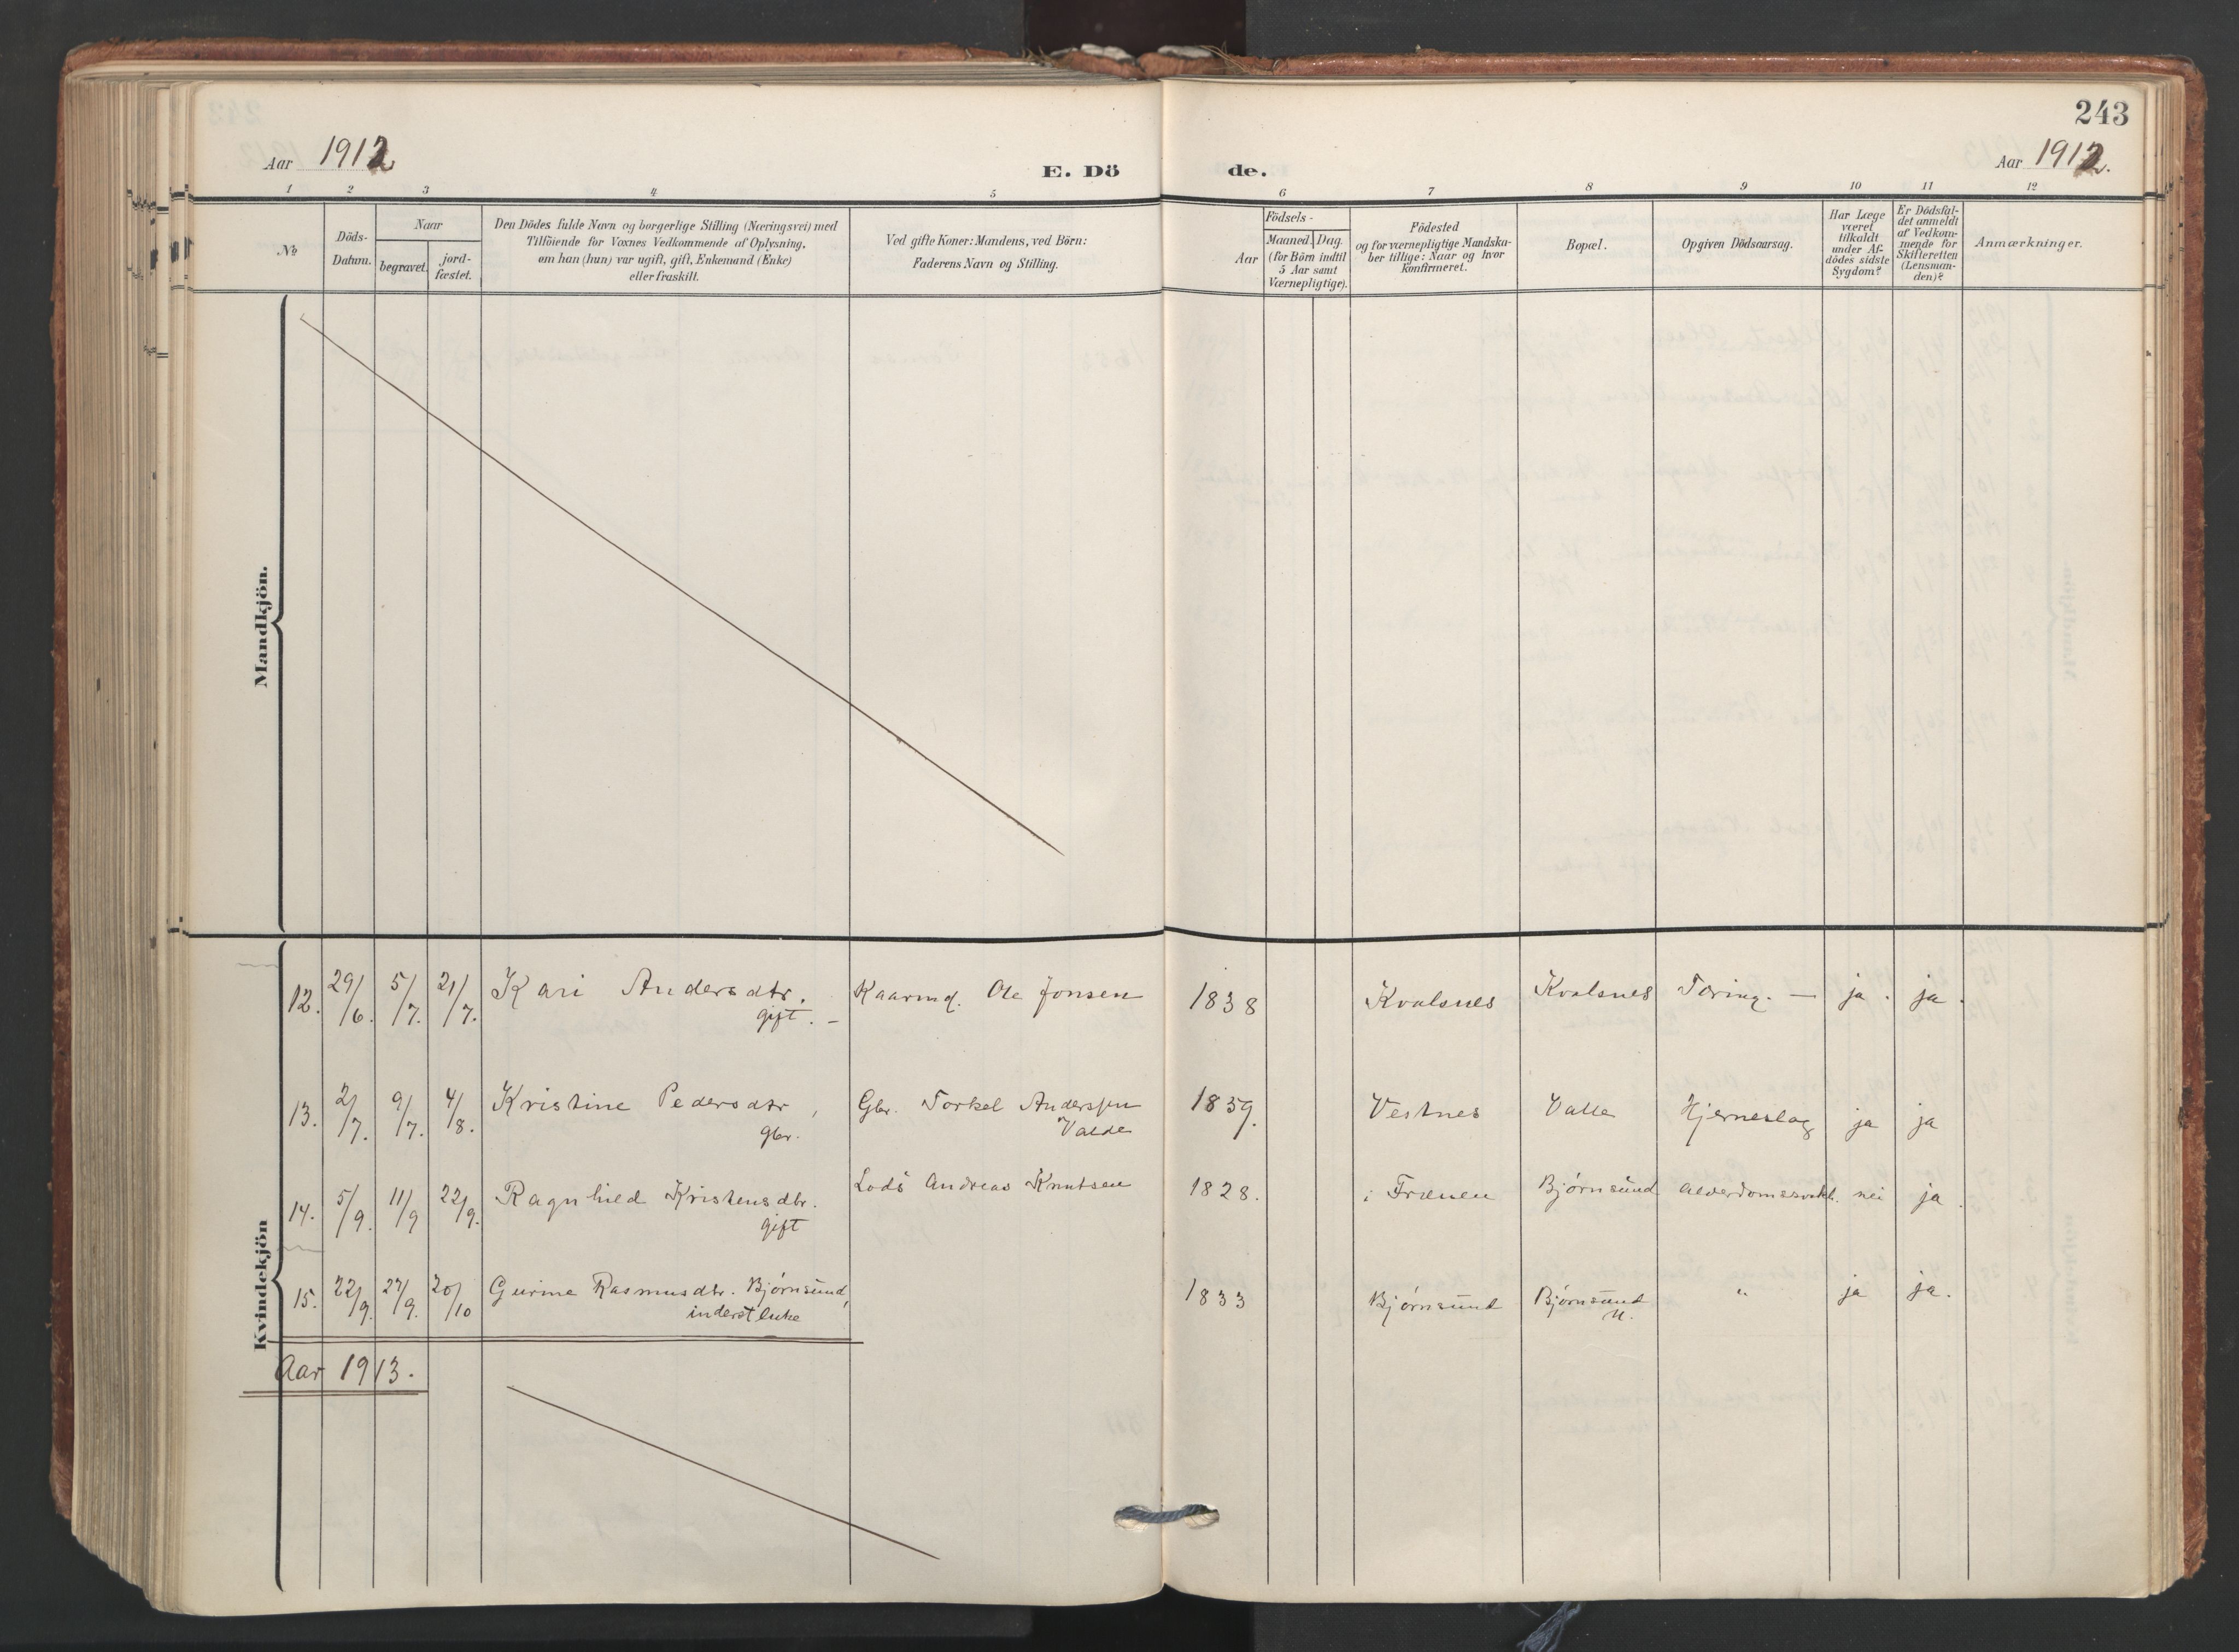 243
Aar 1912
E. Dö
de.
Aar 1912.
1 2 3 4 5 6 7 8 9 10 11 12
No
Döds-
Datum.
Naar
begravet.
jord-
fæstet.
Den Dödes fulde Navn og borgerlige Stilling (Næringsvei) med
Tilföiende for Voxnes Vedkommende af Oplysning,
om han (hun) var ugift, gift, Enkemand (Enke)
eller fraskilt.
Ved gifte Koner: Mandens, ved Börn:
Faderens Navn og Stilling.
Födsels-
Aar
Maaned.
Dag.
(for Börn indtil
5 Aar samt
Værnepligtige).
Födested
og for værnepligtige Mandska-
ber tillige: Naar og hvor
konfirmeret.
Bopæl.
Opgiven Dödsaarsag.
Har Læge
været
tilkaldt
under Af-
dödes sidste
Sygdom?
Er Dödsfal-
det anmeldt
af Vedkom-
mende for
Skifteretten
(Lensman-
den)?
Anmærkninger.
Mandkjön.
Kvindekjön
12. 29/6. 5/7. 21/7. Kari Andersdtr. Kaarmd. Ole Jonsen 1838 Kvalsnes Kvalsnes Tæring. — ja. ja.
gift. —
13. 2/7. 9/7. 4/8. Kristine Pedersdtr, Gbr. Torkel Anderssen 1859. Vestnes Valle Hjerneslag ja ja
gbr. Valde
14. 5/9. 11/9 22/9. Ragnhild Kristensdtr. Lods Andreas Knutsen 1828. i Frænen Bjørnsund Alderdomssvakh. nei ja.
gift
15. 22/9. 27/9. 20/10 Gurine Rasmusdtr. Bjørnsund, 1833 Bjørnsund Bjørnsund " ja ja.
inderst enke N.
Aar 1913.